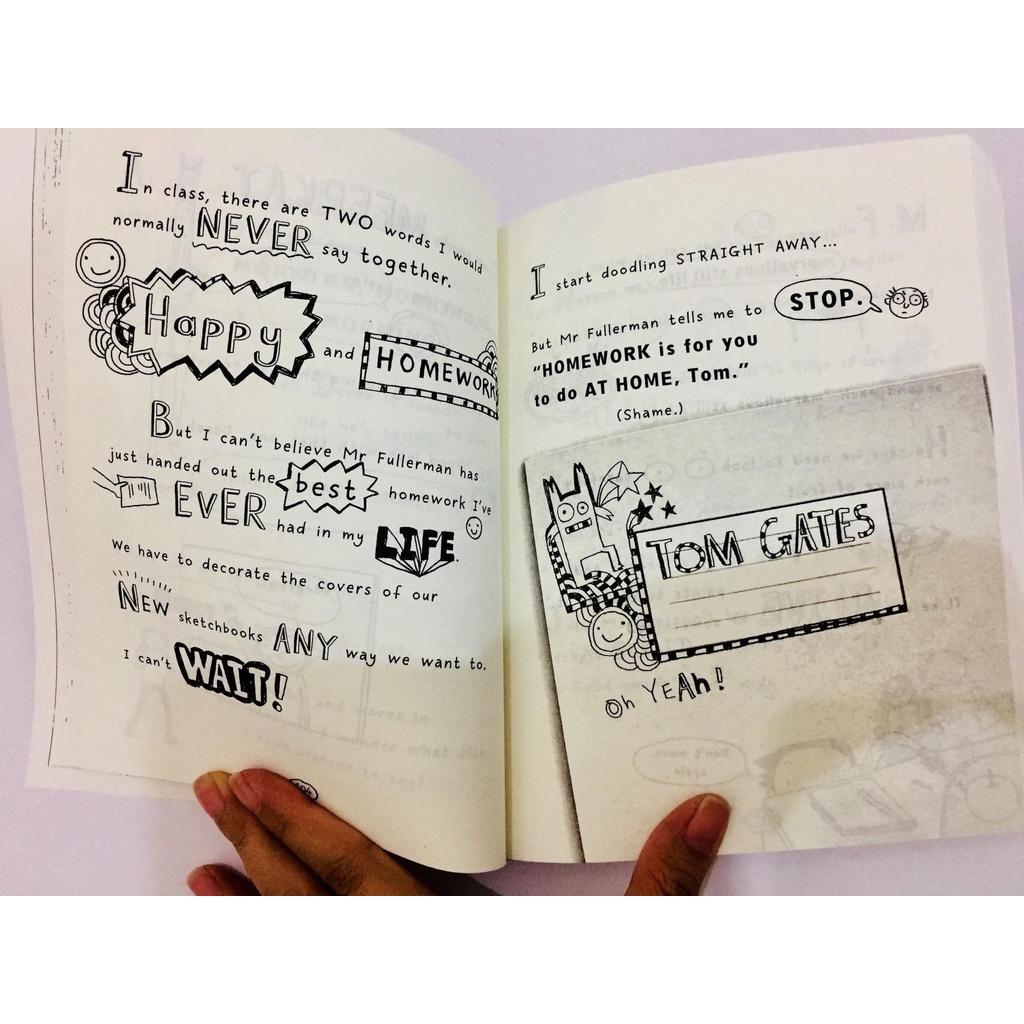 In class, there are TWO words I would
normally NEVER say together.
Happy and HOMEWORK
But I can't believe Mr Fullerman has
just handed out the best homework I've
EVER had in my LIFE.
We have to decorate the covers of our
NEW sketchbooks ANY way we want to.
I can't WAIT!
I start doodling STRAIGHT AWAY...
But Mr Fullerman tells me to STOP.
"HOMEWORK is for you
to do AT HOME, Tom."
(Shame.)
TOM GATES
Oh YEAh!